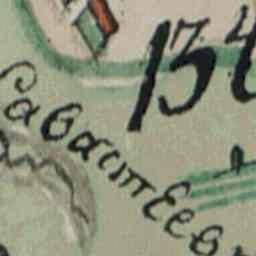 134
Савастеев